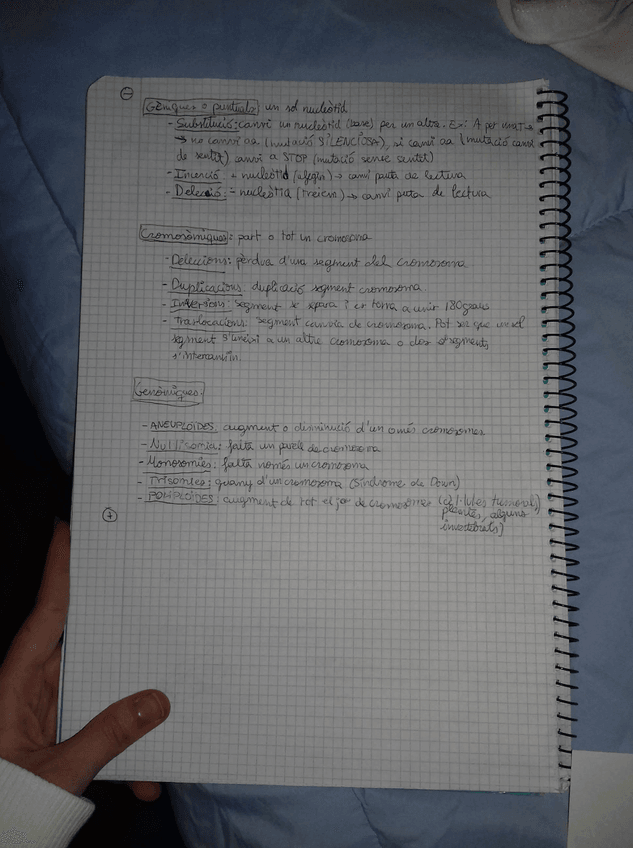 −
Gèniques o puntuals un sol nucleòtid
- Substitució: canvi un nucleòtid (base) per un altre. Ex: A per una T →
→ no canvi aa (mutació SILENCIOSA), si canvi aa (mutació canvi
de sentit) canvi a STOP (mutació sense sentit)
- Inserció + nucleòtid (afegim) → canvi pauta de lectura
- Deleció: - nucleòtid (treiem) → canvi pauta de lectura
Cromosòmiques: part o tot un cromosoma
- Delecions: pèrdua d'una segment del cromosoma
- Duplicacions: duplicació segment cromosoma
- Inversions: segment se separa i es torna a unir 180 graus
- Traslocacions: segment canvia de cromosoma. Pot ser que un sol
segment s'uneixi a un altre cromosoma o dos segments
s'intercanviïn.
Genòmiques
- ANEUPLOÏDES: augment o disminució d'un o més cromosomes
- Nul·lisomia: falta un parell de cromosoma
- Monosomies: falta només un cromosoma
- Trisomies: guany d'un cromosoma (Síndrome de Down)
- POLIPLOÏDES: augment de tot el joc de cromosomes (cèl·lules tumorals,
plantes, alguns
invertebrats)
+